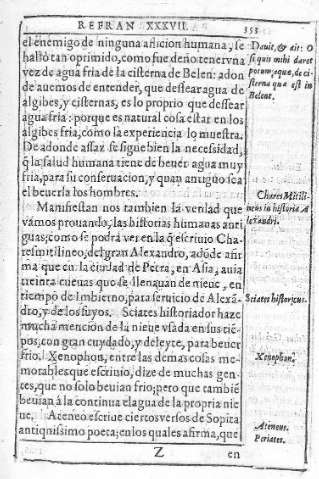 REFRAN XXXVII.
353
el enemigo de ninguna aficion humana, se
hallò tan oprimido, como fue deño tener vna
vez de agua fria de la cisterna de Belen: adon
de auemos de entender, que dessear agua de
algibes, y cisternas, es lo proprio que dessear
agua fria: porque es natural cosa estar en los
algibes fria, como la experiencia lo muestra.
De adonde assaz se sigue bien la necessidad,
q̃ la salud humana tiene de beuer agua muy
fria, para su conseruacion, y quan antiguo sea
el beuerla los hombres.
Manifiestan nos tambien la verdad que
vamos prouando, las historias humanas anti
guas; como se podrà ver en la q̃ escriuio Cha-
res mitilineo, del gran Alexandro, adõde afir
ma que en la ciudad de Petra, en Asia, auia
treinta cueuas que se llenauan de nieue, en
tiempo de Imbierno, para seruicio de Alexã-
dro, y de los suyos. Sciates historiador haze
mucha mencion de la nieue vsada en sus tiẽ-
pos, con gran cuydado, y deleyte, para beuer
frio. Xenophon, entre las demas cosas me-
morables que escriuio, dize de muchas gen-
tes, que no solo beuian frio; pero que tambiẽ
beuian à la continua el agua de la propria nie
ue. Ateneo escriue ciertos versos de Sopita
antiquissimo poeta; en los quales afirma, que
Z
en
Dauit, & ait: O
si quis mihi daret
potum aquæ, de ci-
sterna quæ est in
Belent.
Chares Mitili-
neus in historia A
lexandri.
Sciates historicus.
Xenophon.
Ateneus.
Periates.